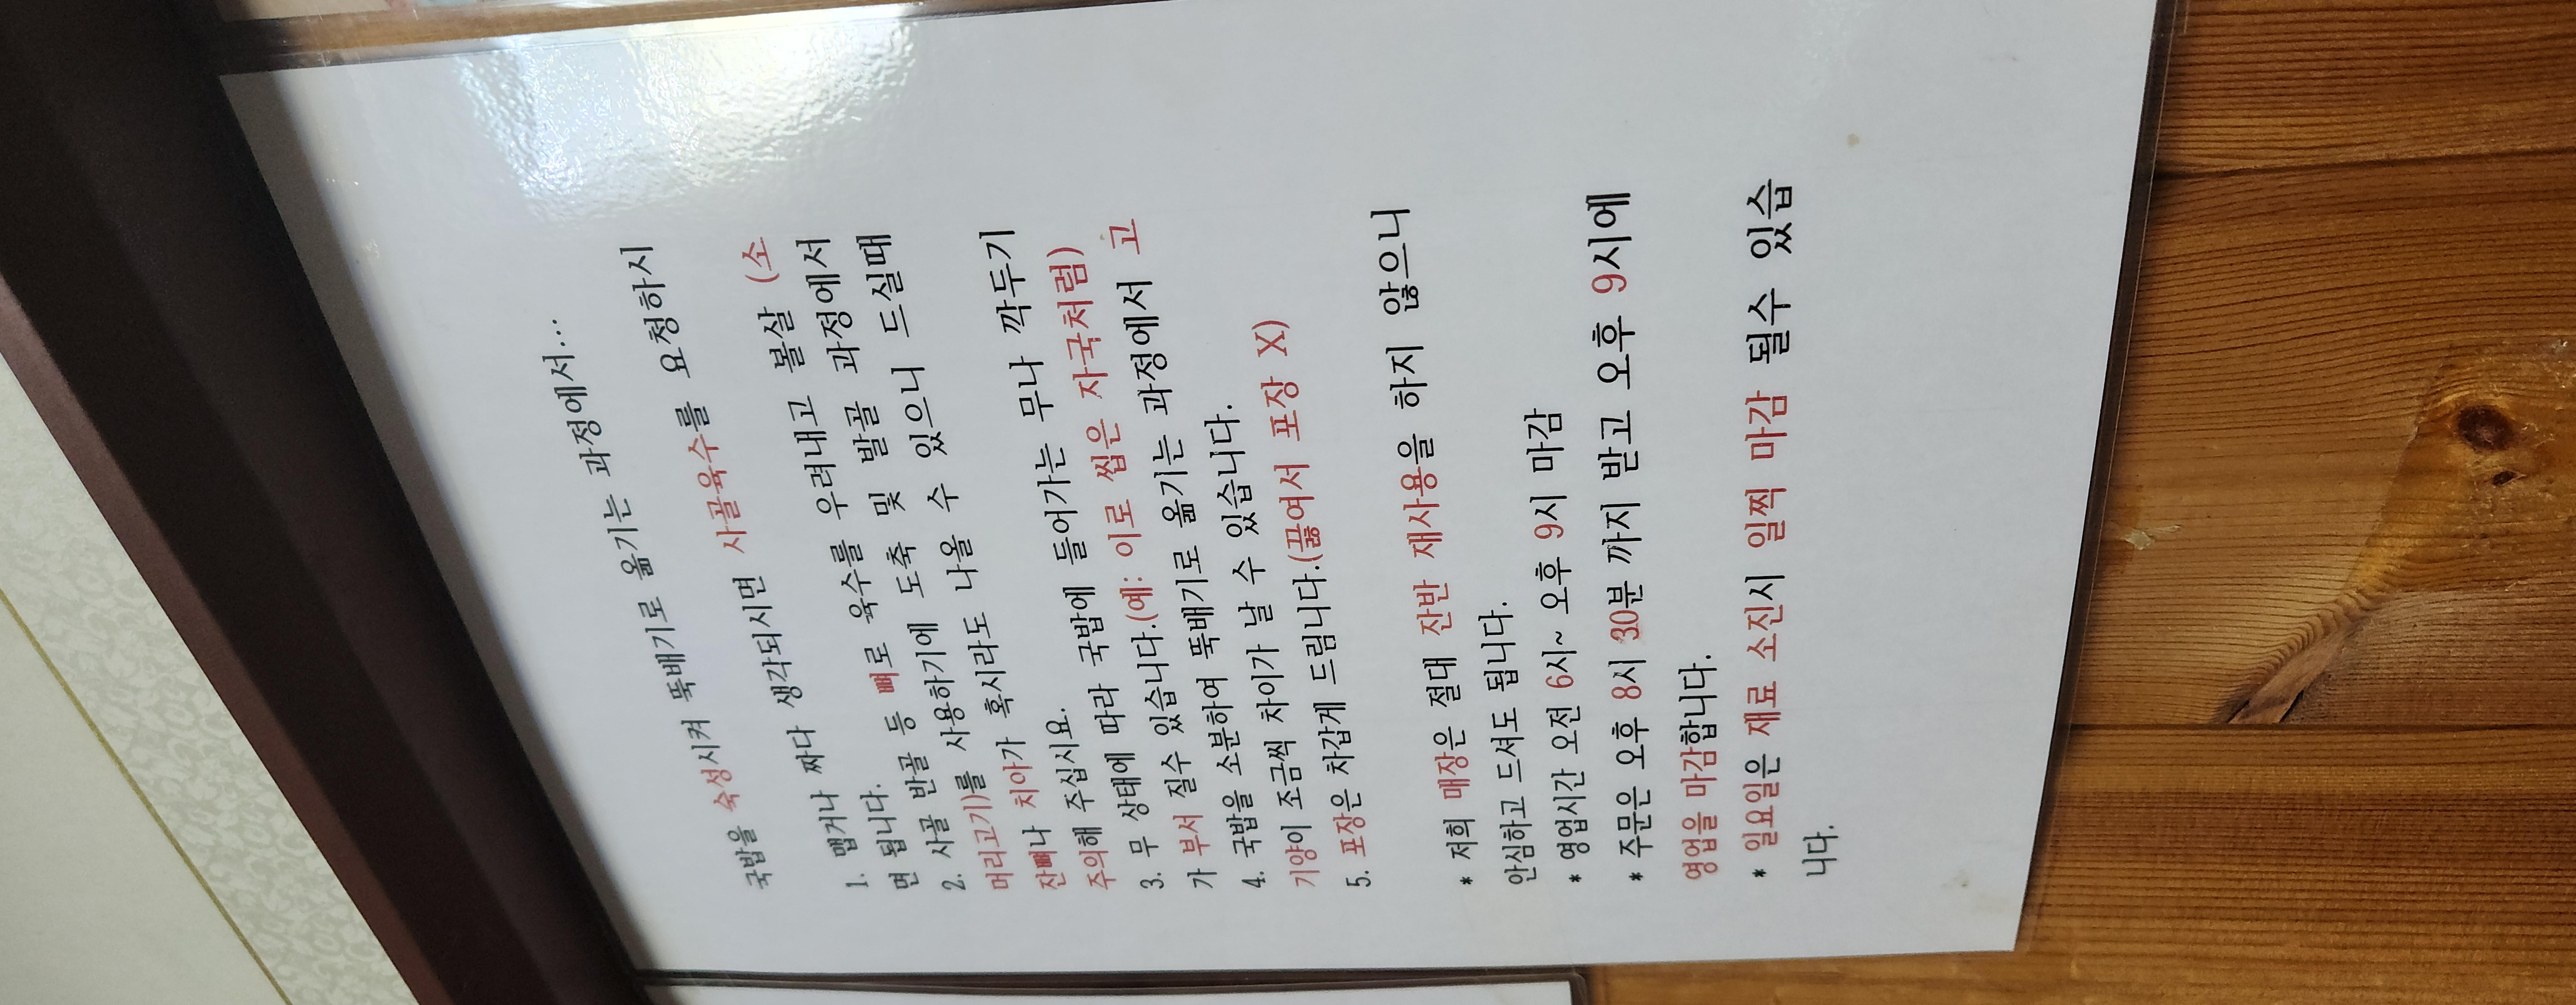 국밥을 숙성시켜 뚝배기로 옮기는 과정에서...
1. 맵거나 짜다 생각되시면 사골육수를 요청하시
면 됩니다.
2. 사골 반골 등 뼈로 육수를 우려내고 볼살 (소
머리고기)를 사용하기에 도축 및 발골 과정에서
잔뼈나 치아가 혹시라도 나올 수 있으니 드실때
주의해 주십시요.
3. 무 상태에 따라 국밥에 들어가는 무나 깍두기
가 부서 질수 있습니다.(예: 이로 씹은 자국처럼)
4. 국밥을 소분하여 뚝배기로 옮기는 과정에서 고
기양이 조금씩 차이가 날 수 있습니다.
5. 포장은 차갑게 드림니다.(끓여서 포장 X)
* 저희 매장은 절대 잔반 재사용을 하지 않으니
안심하고 드셔도 됩니다.
* 영업시간 오전 6시~ 오후 9시 마감
* 주문은 오후 8시 30분 까지 받고 오후 9시에
영업을 마감합니다.
* 일요일은 재료 소진시 일찍 마감 될수 있습
니다.